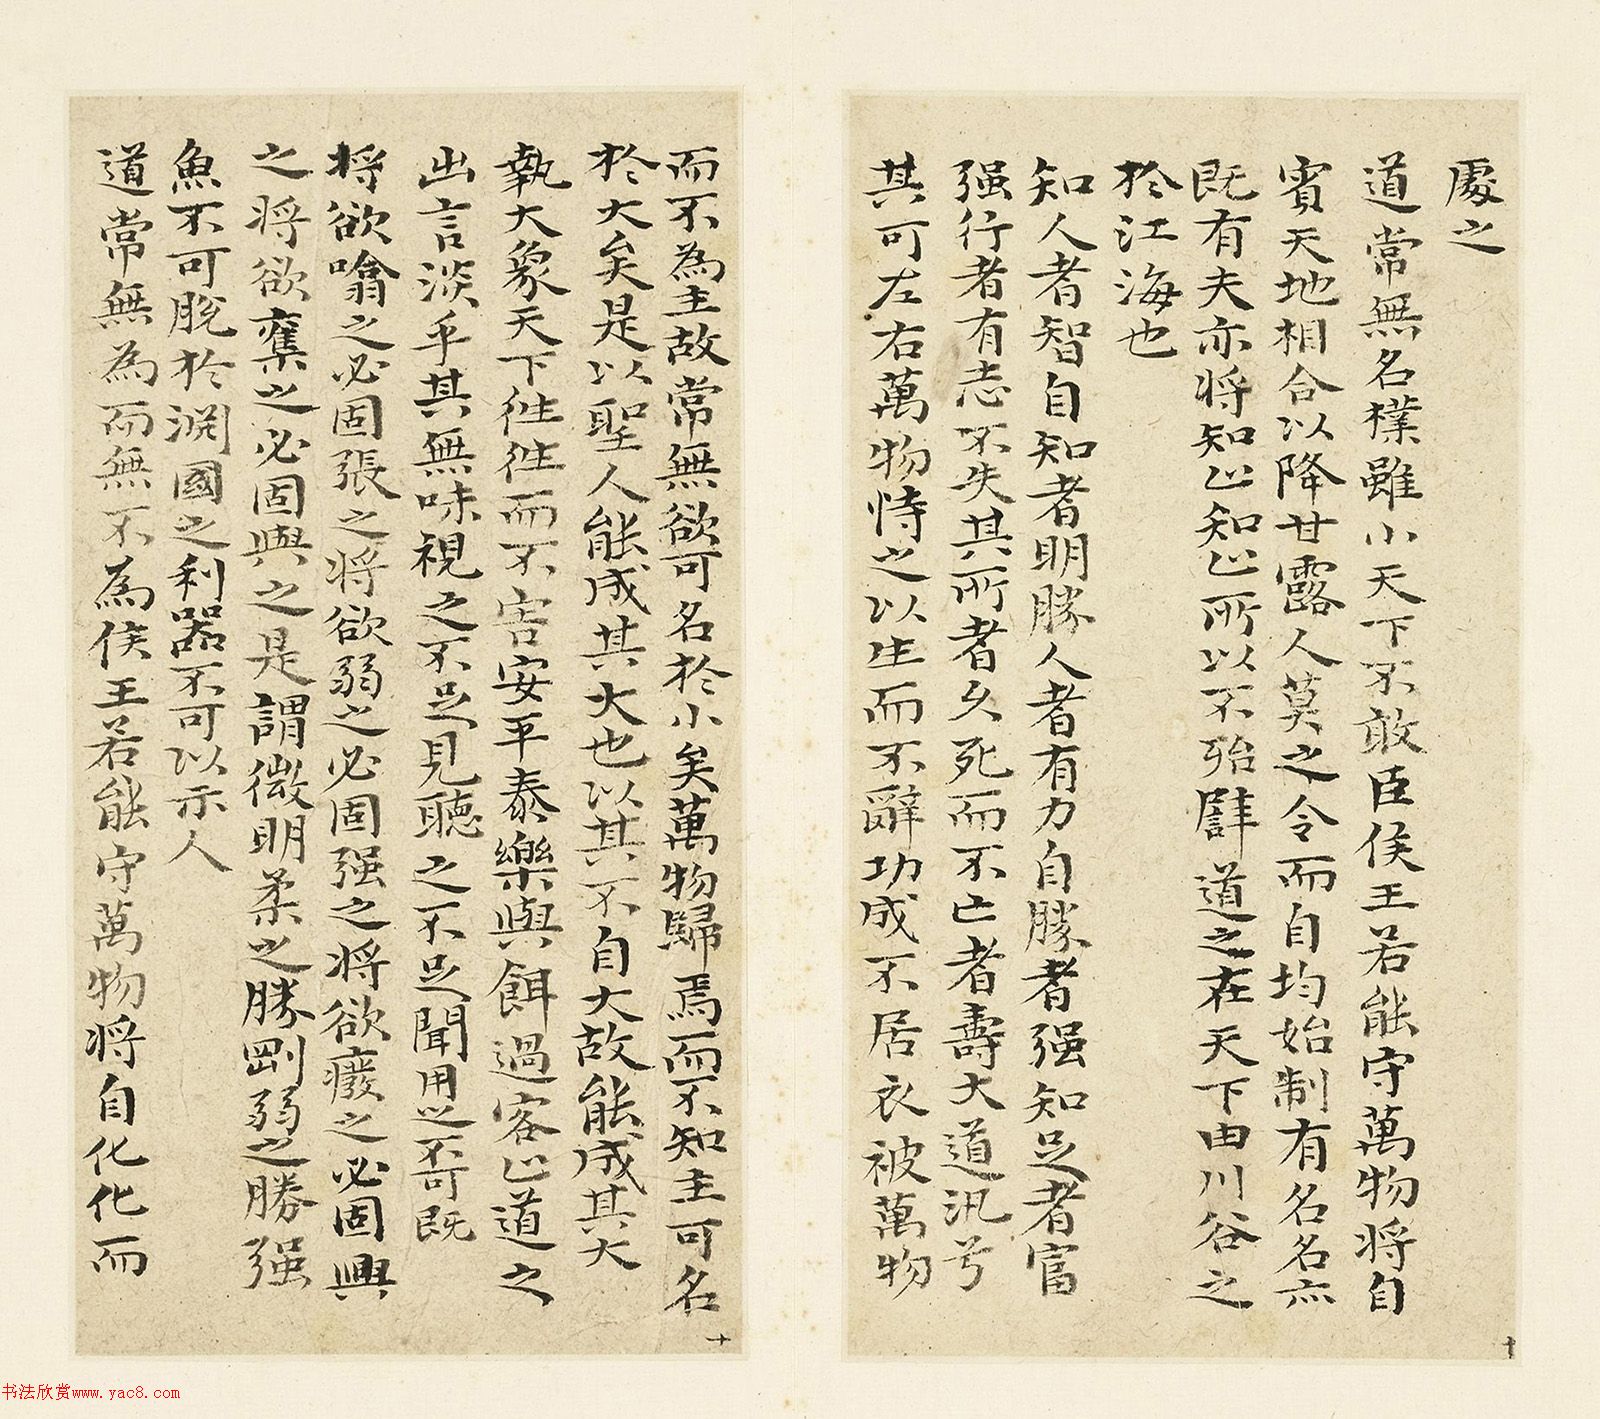 處之
道常無名樸雖小天下不敢臣侯王若能守萬物將自
賓天地相合以降甘露人莫之令而自均始制有名名亦
既有夫亦將知止知止所以不殆譬道之在天下由川谷之
於江海也
知人者智自知者明勝人者有力自勝者强知足者富
强行者有志不失其所者久死而不亡者壽大道汎兮
其可左右萬物恃之以生而不辭功成不居衣被萬物
十
而不為主故常無欲可名於小矣萬物歸焉而不知主可名
於大矣是以聖人能成其大也以其不自大故能成其大
執大象天下往往而不害安平泰樂與餌過客止道之
出言淡乎其無味視之不足見聽之不足聞用之不可既
將欲噏之必固張之將欲弱之必固强之將欲癈之必固興
之將欲奪之必固與之是謂微明柔之勝剛弱之勝强
魚不可脫於淵國之利器不可以示人
道常無為而無不為侯王若能守萬物將自化化而
十
书法欣赏www.yac8.com